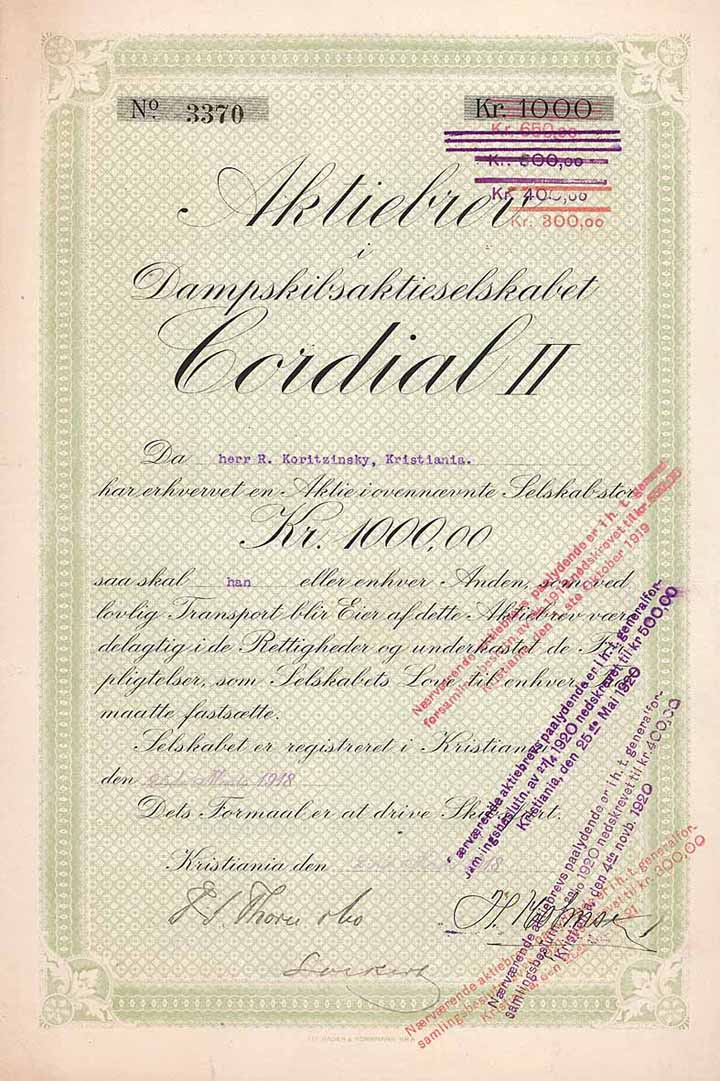 Nº 3370
Kr. 1000
Kr. 650,00
Kr. 500,00
Kr. 400,00
Kr. 300,00
Aktiebrev
i
Dampskibsaktieselskabet
Cordial II
Da herr R. Koritzinsky, Kristiania.
har erhvervet en Aktie i ovennævnte Selskab stor
Kr. 1000,00
saa skal han eller enhver Anden, som ved
lovlig Transport blir Eier af dette Aktiebrev være
delagtig i de Rettigheder og underkastet de For-
pligtelser, som Selskabets Love til enhver Tid
maatte fastsætte.
Selskabet er registreret i Kristiania
den 1918
Dets Formaal er at drive Skibsfart.
Kristiania den 1918
Nærværende aktiebrevs paalydende er i h. t. general-
forsamlingsbeslutn. av nedskrevet til kr.
Kristiania, den ste Oktober 1919
Nærværende aktiebrevs paalydende er i h. t. generalfor-
samlingsbeslutn. av 27/4 1920 nedskrevet til kr 500,00
Kristiania, den 25de Mai 1920
Nærværende aktiebrevs paalydende er i h. t. generalfor-
samlingsbeslutn. 1920 nedskrevet til kr. 400,00
Kristiania, den 4de novb. 1920
Nærværende aktiebrevs i h. t. generalfor-
samlingsbeslutn. til kr. 300,00
Kristiania, den